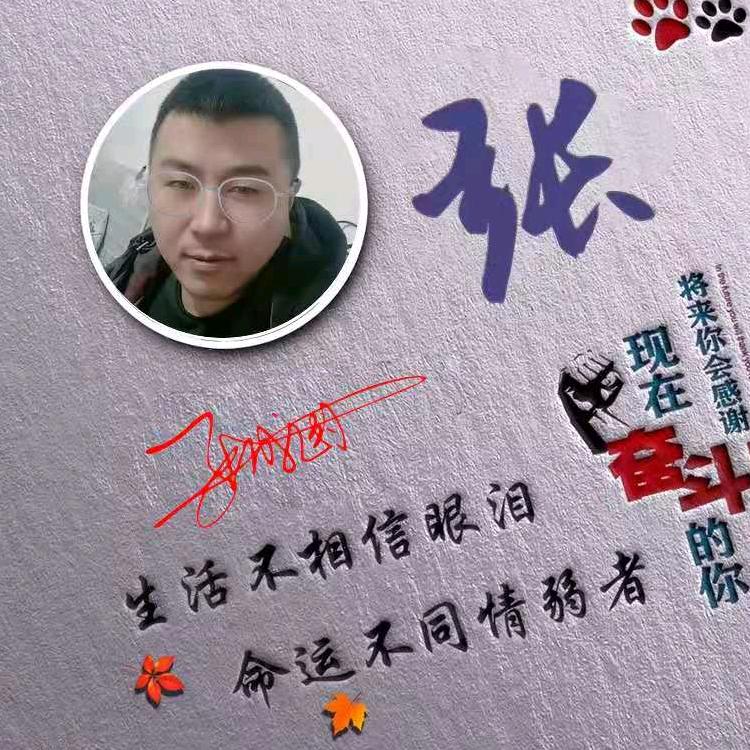 张
将来你会感谢
现在
奋斗
的你
生活不相信眼泪
命运不同情弱者